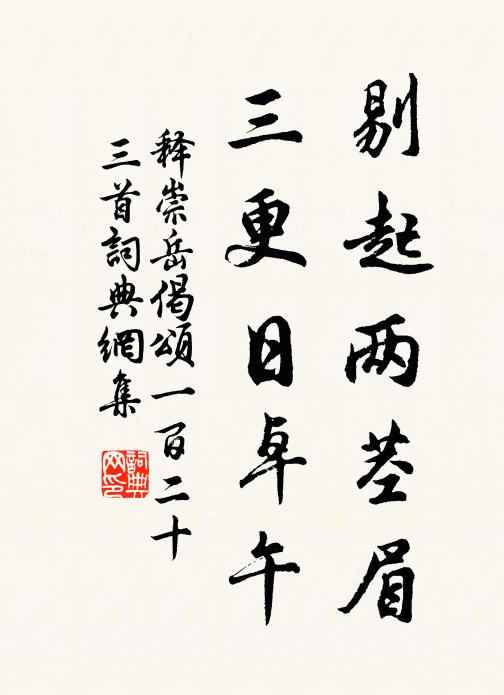 剔起两茎眉
三更日卓午
释崇岳偈頌一百二十
三首詞典網集
詞典
网印